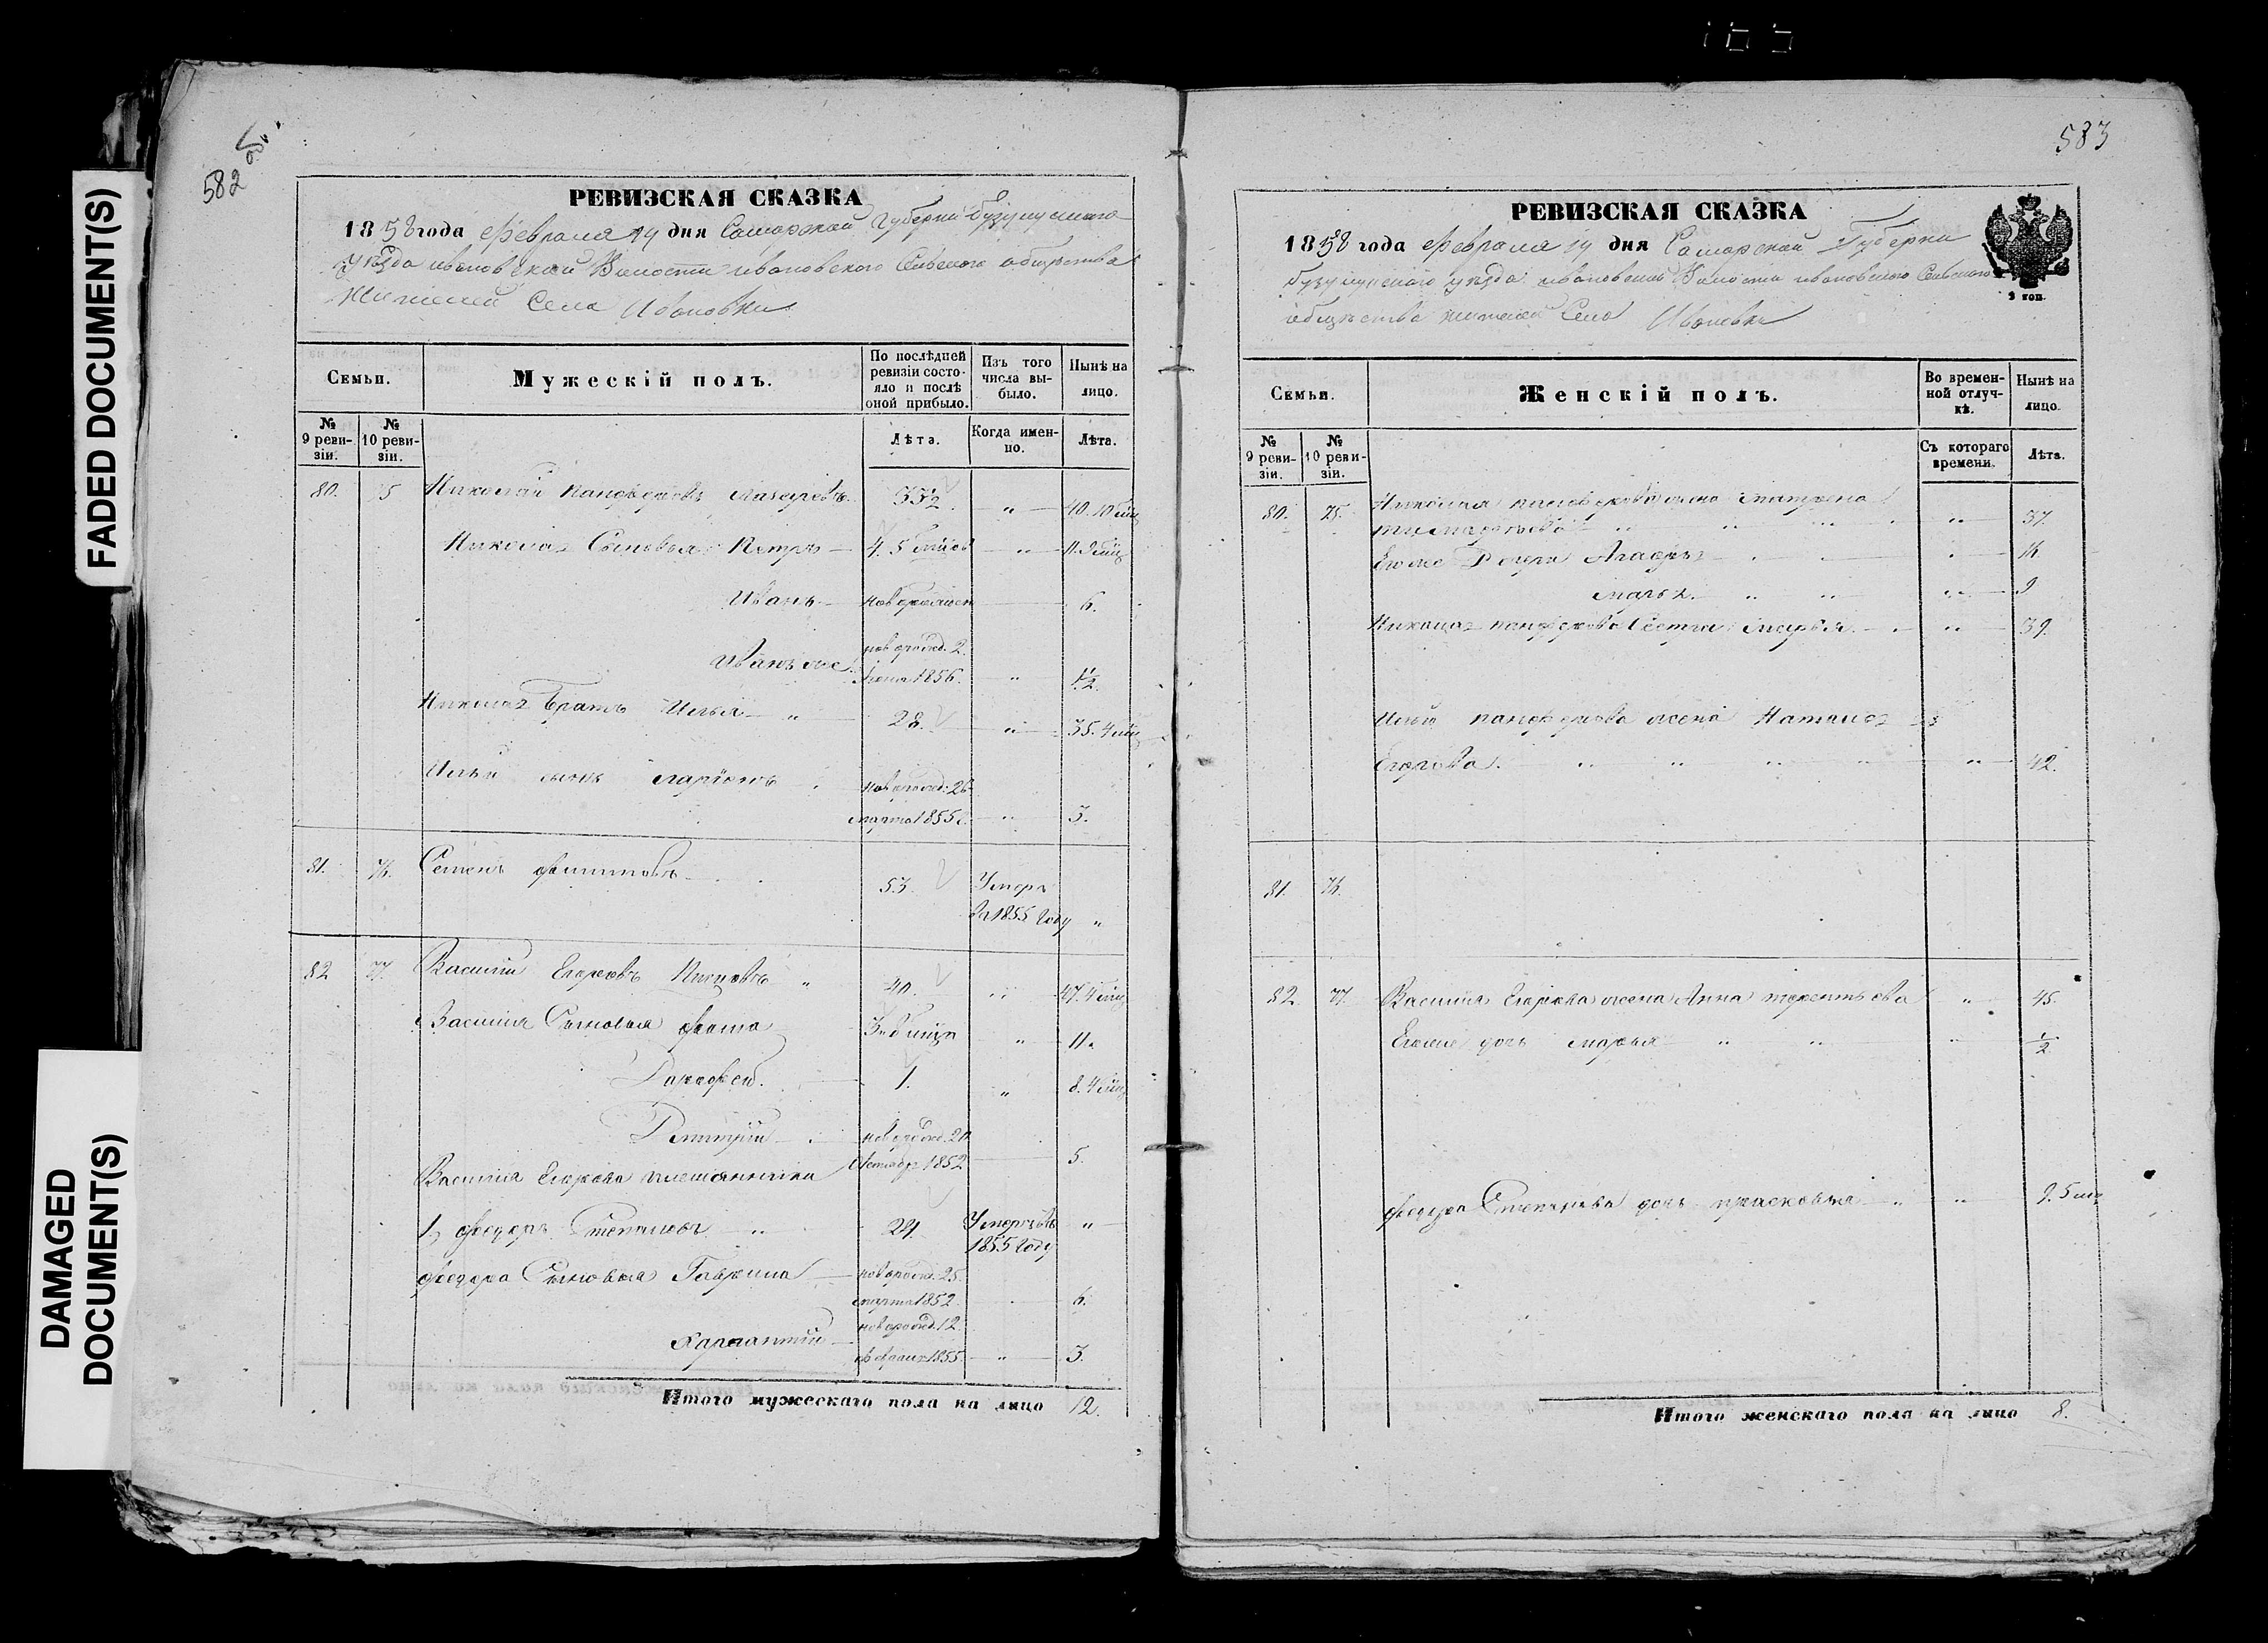 FADED DOCUMENT(S)
DAMAGED
DOCUMENT(S)
582
РЕВИЗСКАЯ СКАЗКА
1858 года Февраля 14 дня Самарской Губерни Бузулуцкаго
уѣзда ивановской Волости ивановского Сельского общества
жителей Села Ивановки
Семьи.
Мужескій полъ.
По послѣдней ревизіи состояло и послѣ оной прибыло.
Изъ того числа выбыло.
Нынѣ на лицо.
№ 9 ревизіи.
№ 10 ревизіи.
Лѣта.
Когда именно.
Лѣта.
80. 75 Николай Панферовъ 33½ " 40. 10
Николая Сыновья Петръ 4. 5 " 11.
Иванъ новорожден 6.
Иванъ же новорожд. 2.
1856. " 1½.
Николая Братъ Илья " 28. " 35. 4
Ильи сынъ ларіонъ новорожд. 26
марта 1855 " 3.
81. 76. Семенъ филиповъ 53. Умеръ
въ 1855 году "
82 77. Василий Егоровъ " 40. " 47. 4
Василия Сыновья 3. " 11.
Дорофей. 1. " 8. 4
Дмитрий новорожд. 20
Октября 1852 5.
Василия Егорова племянники
1, федоръ Степановъ " 24. Умеръ въ "
1855 году
федора Сыновья Гаврила новорожд. 25.
марта 1852. 6.
Харлантий новорожд. 12.
февраля 1855. " 3.
Итого мужескаго пола на лицо 12.
583
РЕВИЗСКАЯ СКАЗКА
1858 года Февраля 14 дня Самарской Губерни
Бузулуцкаго уѣзда ивановской Волости ивановского Сельского
общества жителей Села Ивановки
3 коп.
Семьи.
Женскій полъ.
Во временной отлучкѣ.
Нынѣ на лицо.
№ 9 ревизіи.
№ 10 ревизіи.
Съ котораго времени.
Лѣта.
80. 75. Николая панферова жена матрена
тимофеева " 37.
Его же Дочери 16
марья " 9
Николая панферова Сестра марья " 39.
Ильи панферова жена Наталья
Егорова. " 42.
81. 76.
82. 77. Василия Егорова жена Анна терентьева " 45.
Его же дочь марья " ½
федора Степанова дочь прасковья " 9. 5
Итого женскаго пола на лицо 8.